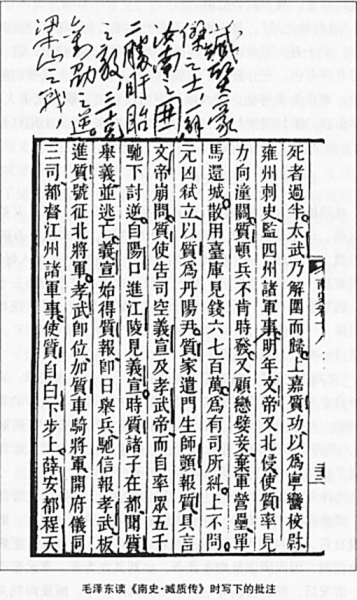 臧質豪
傑之士,一解
汝南之围
二勝盱眙
之敌,三克
劉劭之逆
梁山之战
死者過半。太武乃解圍而歸。上嘉質功以為寧蠻校尉
雍州刺史監四州諸軍事。明年文帝又北侵使質率見
力向潼關質頓兵不肯時發又顧戀嬖妾棄軍營壘單
馬還城散用臺庫見錢六七百萬為有司所糾上不問
元凶弒立以質為丹陽尹質家遣門生師顗報質具言
文帝崩問質使告司空義宣及孝武帝而自率眾五千
馳下討逆自陽口進江陵見義宣時質諸子在都聞質
舉義並逃亡義宣始得質報即日舉兵馳信報孝武板
進質號征北將軍孝武即位加質車騎將軍開府儀同
三司都督江州諸軍事使質自白下步上薛安都程天
毛泽东读《南史·臧质传》时写下的批注